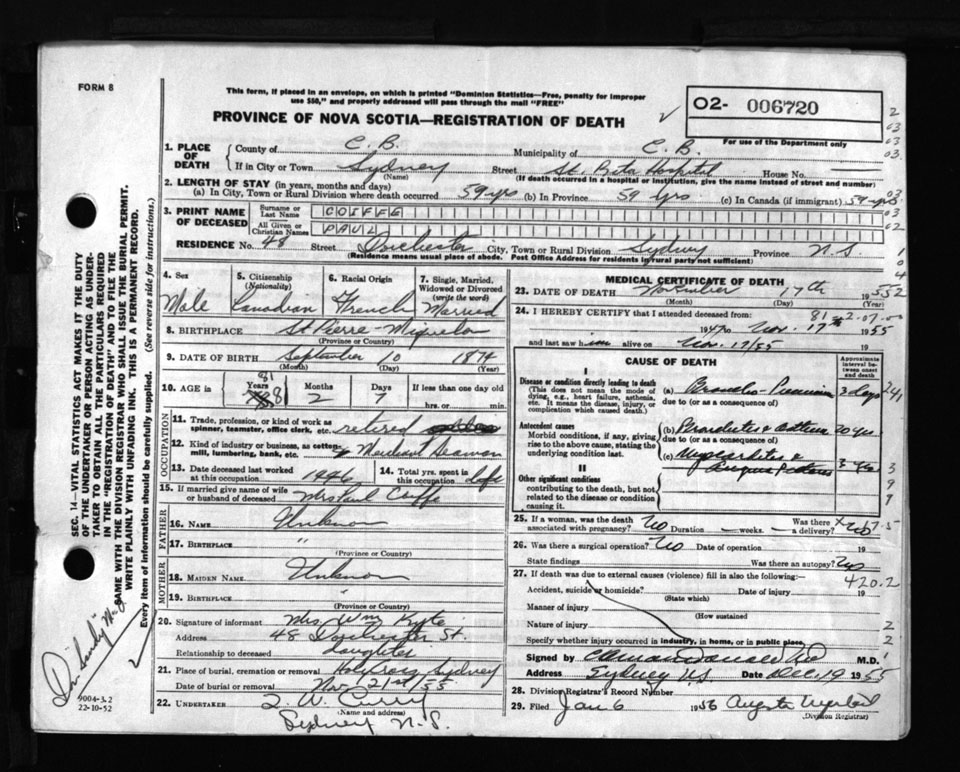 FORM 8
This form, if placed in an envelope, on which is printed "Dominion Statistics—Free, penalty for improper
use $50," and properly addressed will pass through the mail "FREE"
PROVINCE OF NOVA SCOTIA—REGISTRATION OF DEATH
O2- 006720
For use of the Department only
1. PLACE OF DEATH
County of C. B. Municipality of C. B.
If in City or Town Sydney Street St. Rita Hospital House No.
(Name) (If death occurred in a hospital or institution, give the name instead of street and number)
2. LENGTH OF STAY (in years, months and days)
(a) In City, Town or Rural Division where death occurred 59 yrs (b) In Province 59 yrs. (c) In Canada (if immigrant) 59 yrs.
3. PRINT NAME OF DECEASED
Surname or Last Name COIFFE
All Given or Christian Names PAUL
RESIDENCE No. 48 Street Dorchester City, Town or Rural Division Sydney Province N.S.
(Residence means usual place of abode. Post Office Address for residents in rural party not sufficient)
4. Sex 5. Citizenship (Nationality) 6. Racial Origin 7. Single, Married, Widowed or Divorced (write the word)
Male Canadian French Married
8. BIRTHPLACE St Pierre-Miquelon
(Province or Country)
9. DATE OF BIRTH September 10 1874
(Month) (Day) (Year)
10. AGE in Years Months Days If less than one day old
81 81 2 7 hrs. or min.
OCCUPATION
11. Trade, profession, or kind of work as spinner, teamster, office clerk, etc. retired
12. Kind of industry or business, as cotton-mill, lumbering, bank, etc. Merchant Seaman
13. Date deceased last worked at this occupation 1946 14. Total yrs. spent in this occupation Life
15. If married give name of wife or husband of deceased Mrs Paul Coiffe
FATHER
16. NAME Unknown
17. BIRTHPLACE "
(Province or Country)
MOTHER
18. MAIDEN NAME Unknown
19. BIRTHPLACE "
(Province or Country)
20. Signature of informant Mrs. Wm Kyte
Address 48 Dorchester St.
Relationship to deceased daughter
21. Place of burial, cremation or removal Holy Cross Sydney
Date of burial or removal Nov 21st/55
22. UNDERTAKER W. Curry
(Name and address)
Sydney N.S.
MEDICAL CERTIFICATE OF DEATH
23. DATE OF DEATH November 17th 1955
(Month) (Day)
24. I HEREBY CERTIFY that I attended deceased from:
1947 to Nov. 17th 1955
and last saw him alive on Nov. 17/55 19
CAUSE OF DEATH
Approximate interval between onset and death
I
Disease or condition directly leading to death
(This does not mean the mode of dying, e.g., heart failure, asthenia, etc. It means the disease, injury, or complication which caused death.)
(a) Broncho-Pneumonia 3 days
due to (or as a consequence of)
Antecedent causes
Morbid conditions, if any, giving rise to the above cause, stating the underlying condition last.
(b) Bronchitis & Asthma 20 yrs
due to (or as a consequence of)
(c) Myocarditis & Angina Pectoris
II
Other significant conditions
contributing to the death, but not related to the disease or condition causing it.
25. If a woman, was the death associated with pregnancy? No Duration weeks Was there a delivery? No
26. Was there a surgical operation? No Date of operation 19
State findings Was there an autopsy? No
27. If death was due to external causes (violence) fill in also the following:—
420.2
Accident, suicide or homicide? Date of injury 19
(State which)
Manner of injury
(How sustained
Nature of injury
Specify whether injury occurred in industry, in home, or in public place,
Signed by MacDonald M.D.
Sydney N.S. Dec. 19 1955
28. Division Registrar's Record Number
29. Filed Jan 6 1956
(Division Registrar)
SEC. 14—VITAL STATISTICS ACT MAKES IT THE DUTY
OF THE UNDERTAKER OR PERSON ACTING AS UNDER-
TAKER TO OBTAIN ALL THE PARTICULARS REQUIRED
IN THE "REGISTRATION OF DEATH" AND TO FILE THE
SAME WITH THE DIVISION REGISTRAR WHO SHALL ISSUE THE BURIAL PERMIT.
WRITE PLAINLY WITH UNFADING INK. THIS IS A PERMANENT RECORD.
Every item of information should be carefully supplied. (See reverse side for instructions.)
9004-3.2
22-10-52